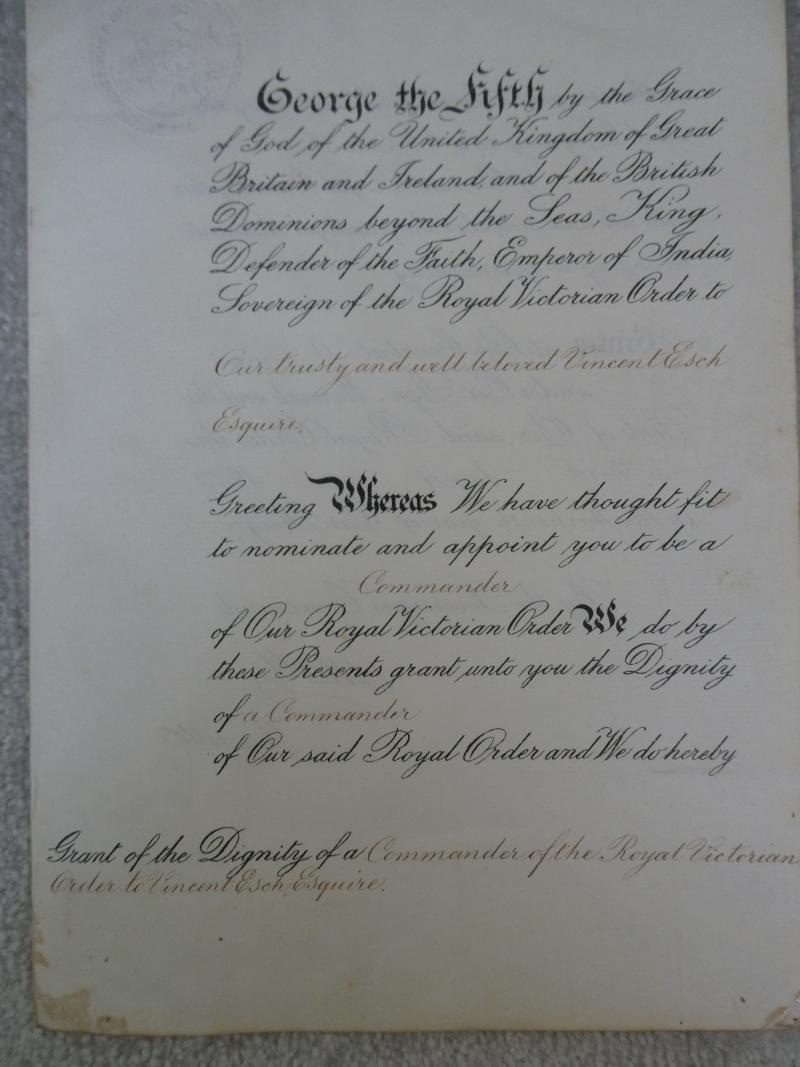 George the Fifth by the Grace
of God of the United Kingdom of Great
Britain and Ireland, and of the British
Dominions beyond the Seas, King,
Defender of the Faith, Emperor of India,
Sovereign of the Royal Victorian Order to
Our trusty and well beloved Vincent Esch
Esquire.
Greeting Whereas We have thought fit
to nominate and appoint you to be a
Commander
of Our Royal Victorian Order We do by
these Presents grant unto you the Dignity
of a Commander
of Our said Royal Order and We do hereby
Grant of the Dignity of a Commander of the Royal Victorian
Order to Vincent Esch, Esquire.